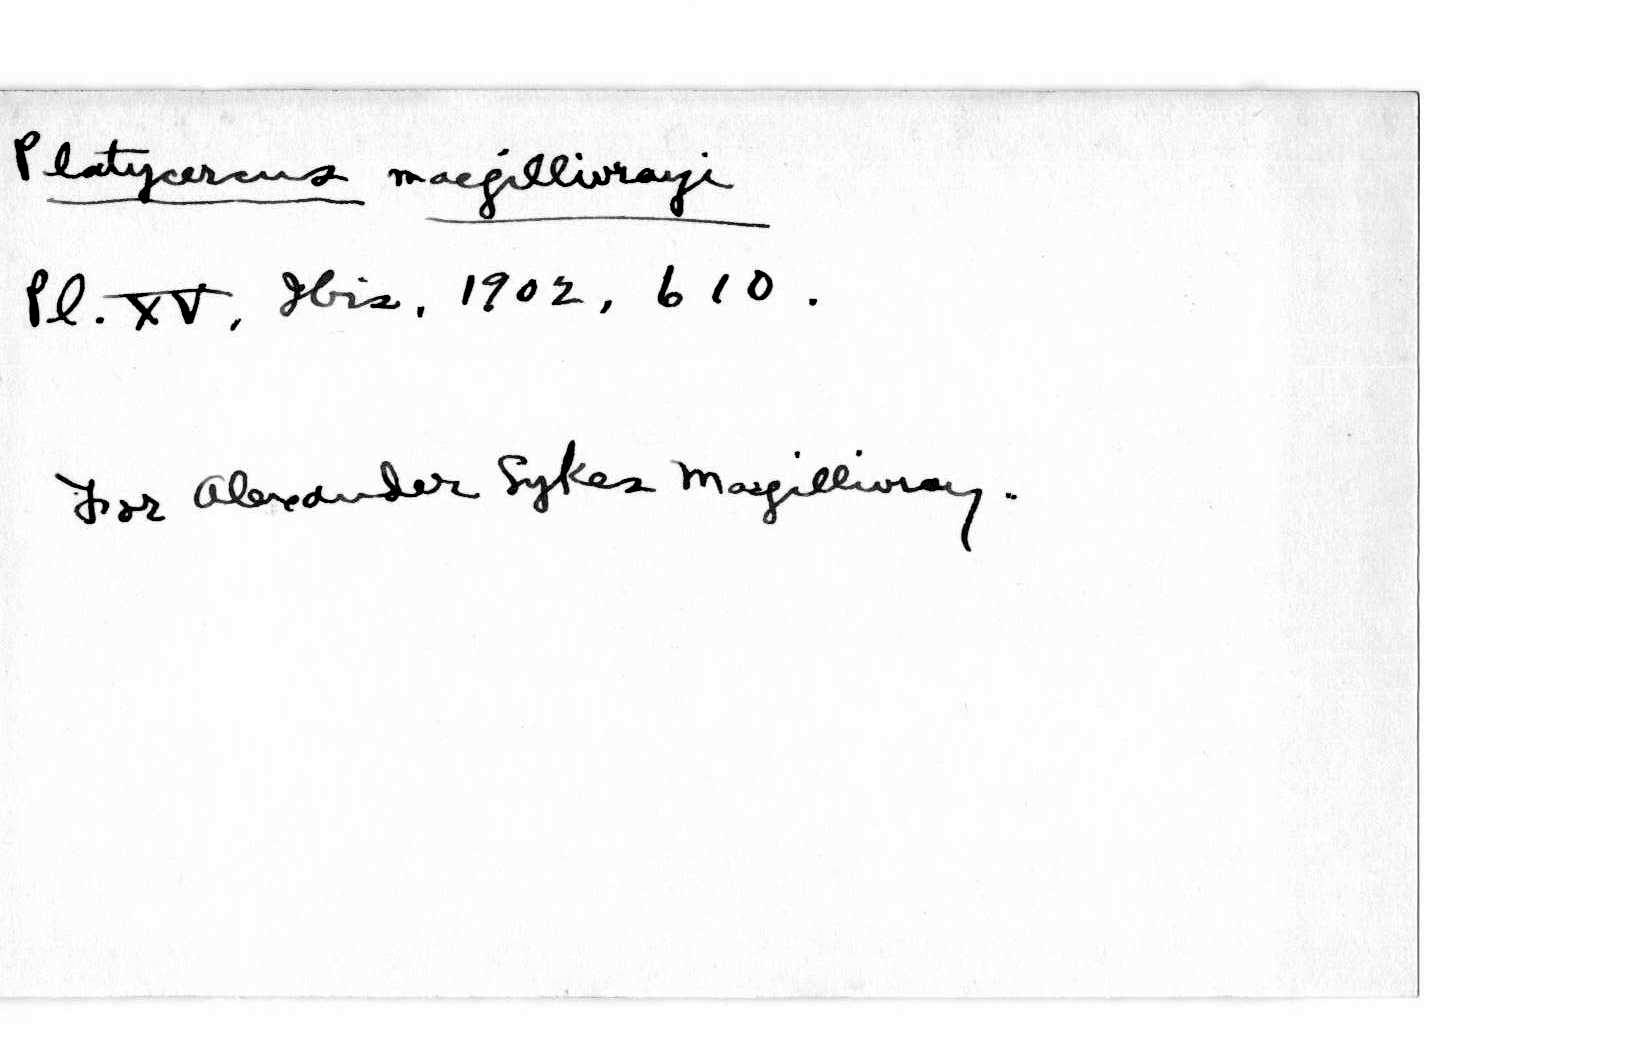 Platycercus macgillivrayi
Pl. XV, Ibis, 1902, 610.
For Alexander Sykes Macgillivray.